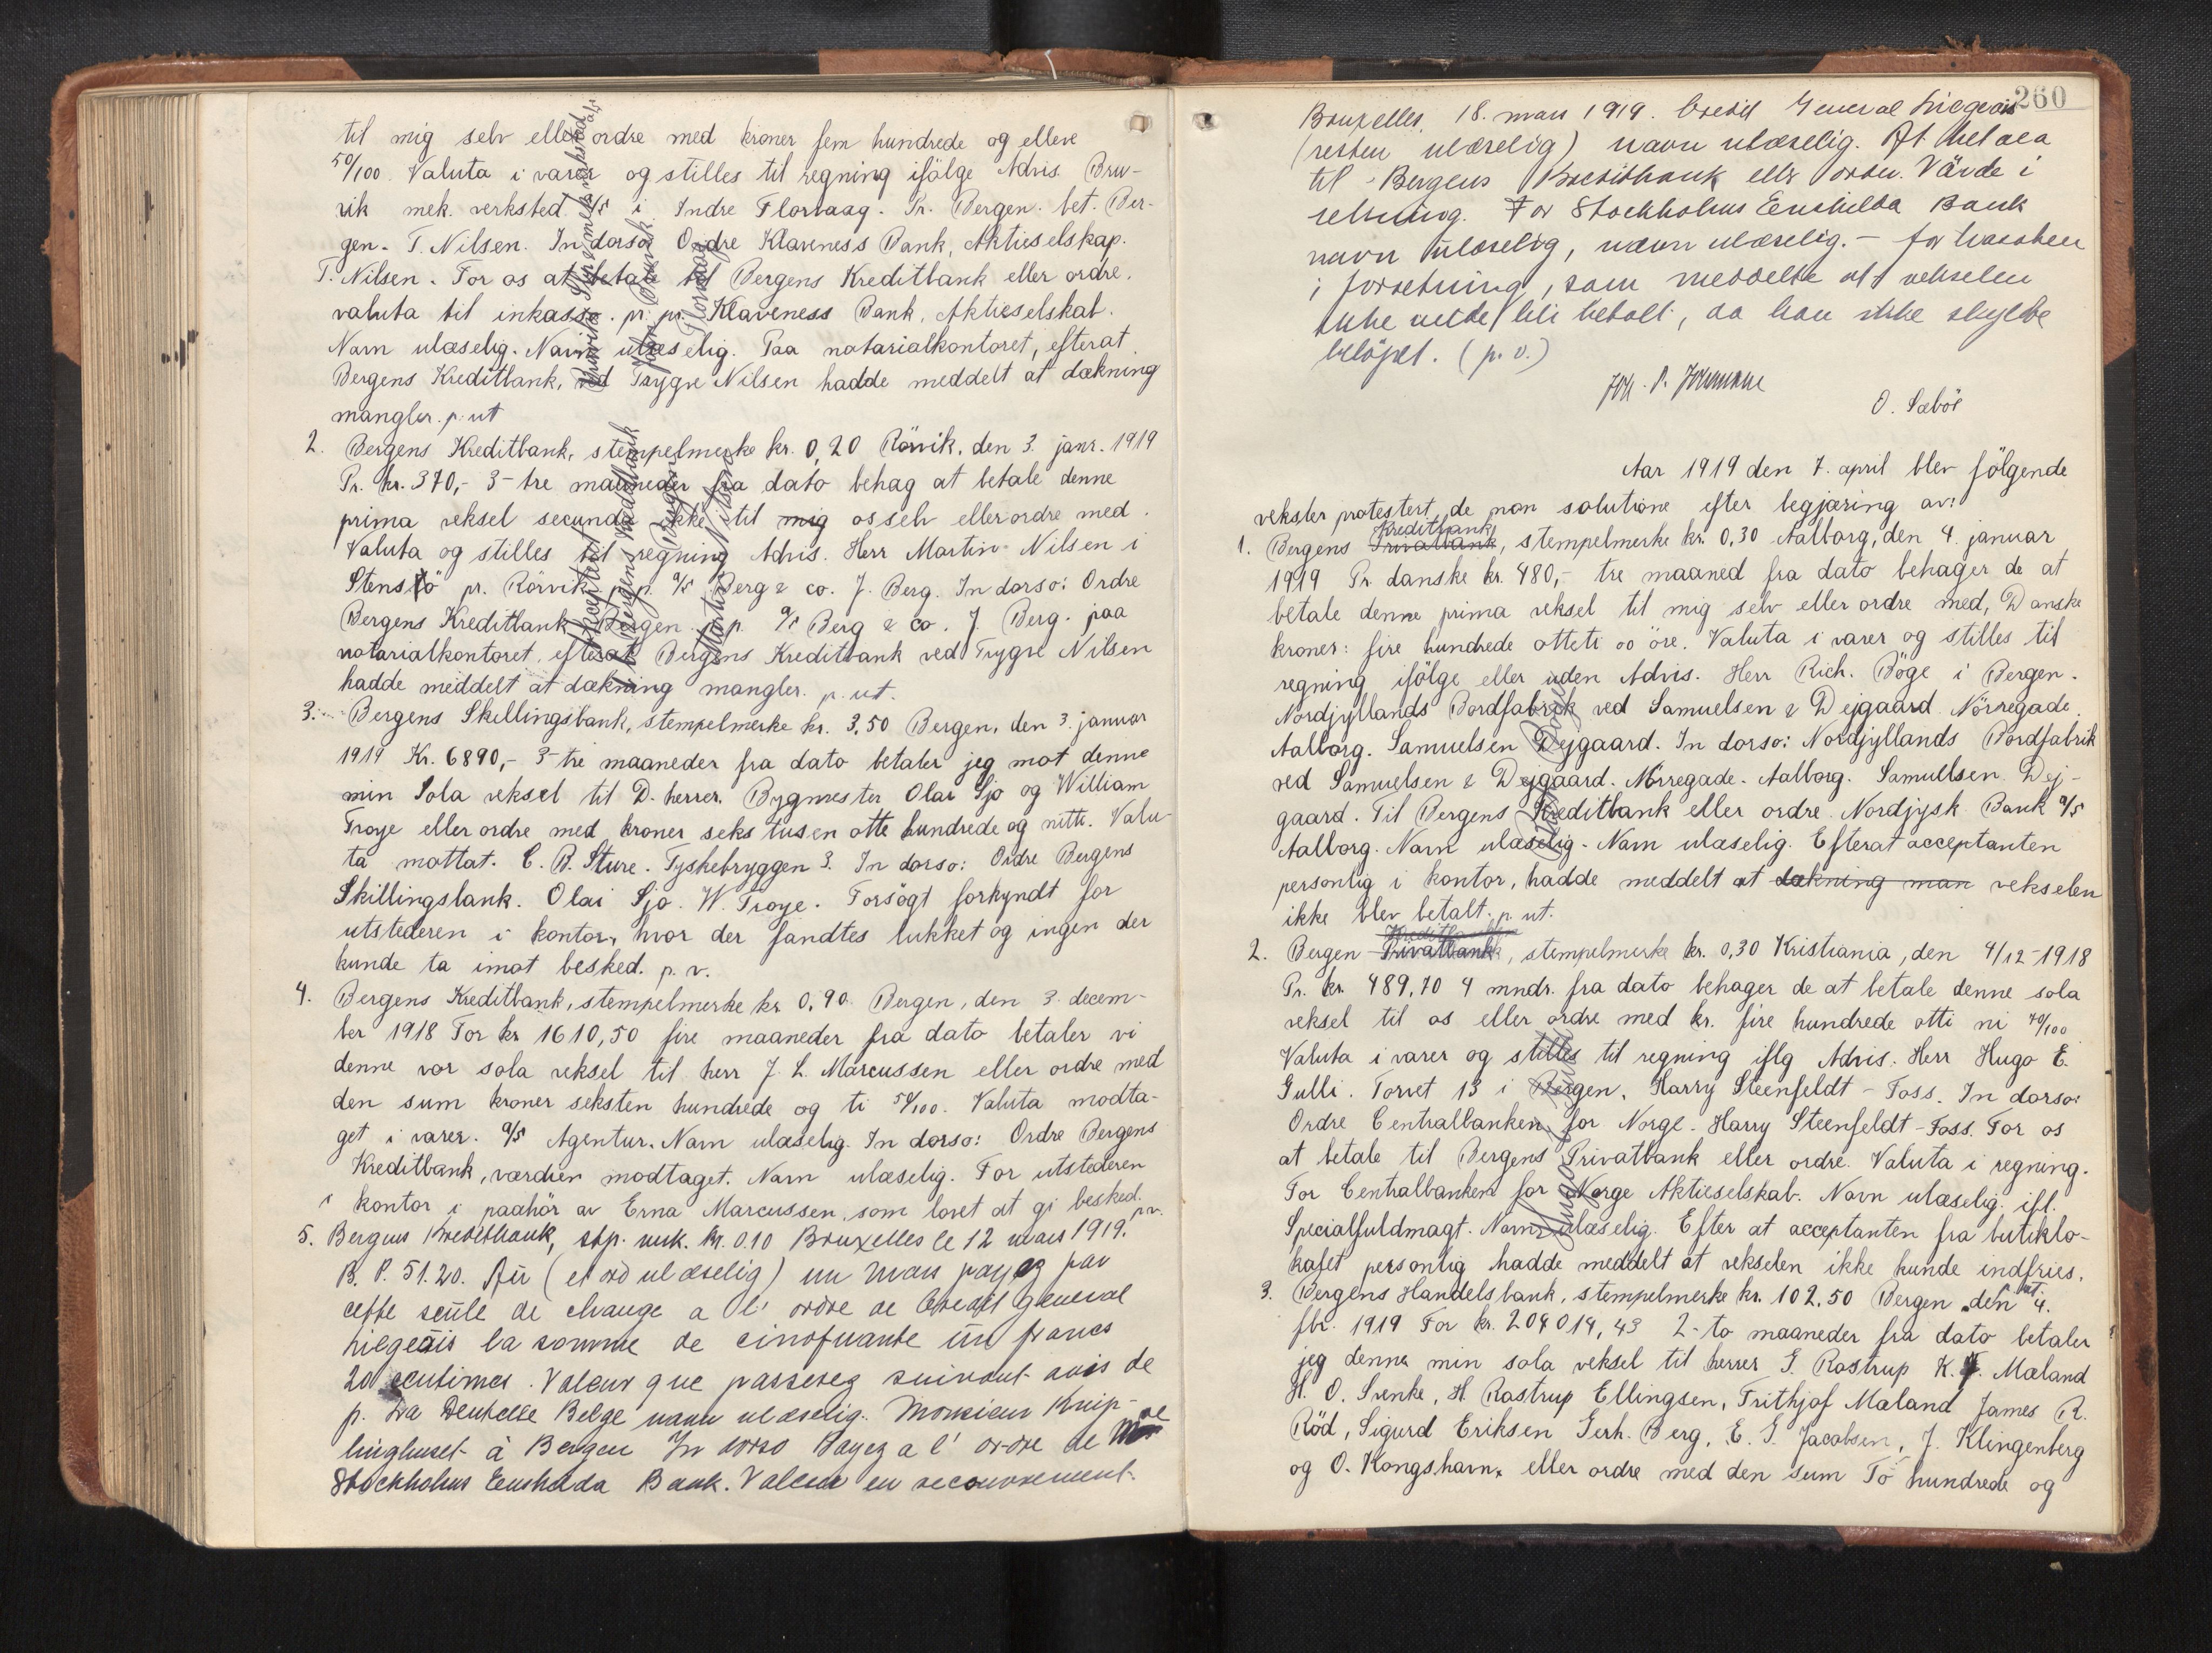 til mig selv eller ordre med kroner fem hundrede og elleve
50/100. Valuta i varer og stilles til regning ifölge Advis. Bru-
vik mek. verksted A/S i Indre Florvaag. Pr. Bergen. bet. Ber-
gen. T. Nilsen. In dorso Ordre Klaveness Bank, Aktieselskap.
T. Nilsen. For os at betale til Bergens Kreditbank eller ordre.
valuta til inkasso. pr. pr. Klaveness Bank, Aktieselskab.
Navn ulæselig. Navn ulæselig. Paa notarialkontoret, efterat
Bergens Kreditbank, ved Trygve Nilsen hadde meddelt at dækning
mangler. p. ut
2. Bergens Kreditbank, stempelmerke kr. 0,20 Rörvik, den 3. janr. 1919
Pr. kr. 370,- 3- tre maaneder fra dato behag at betale denne
prima veksel secunda ikke til mig os selv eller ordre med.
Valuta og stilles til regning Advis. Herr Martin Nilsen i
Stensö pr. Rörvik p.p. A/S Berg & co. J. Berg. In dorso: Ordre
Bergens Kreditbank Bergen. p.p. A/S Berg & co. J. Berg. paa
notarialkontoret, efterat Bergens Kreditbank ved Trygve Nilsen
hadde meddelt at dækning mangler. p. ut.
3. Bergens Skillingsbank, stempelmerke kr. 3,50 Bergen, den 3. januar
1919 Kr. 6890,- 3- tre maaneder fra dato betaler jeg mot denne
min Sola veksel til D. herrer. Bygmester Olai Sjo og William
Troye eller ordre med kroner seks tusen otte hundrede og nitti. Valu-
ta mottat. C. B. Sture. Tyskebryggen 3. In dorso: Ordre Bergens
Skillingsbank. Olai Sjo. W. Troye. Forsögt forkyndt for
utstederen i kontor, hvor der fandtes lukket og ingen der
kunde ta imot besked. p. v.
4. Bergens Kreditbank, stempelmerke kr 0,90. Bergen, den 3. decem-
ber 1918 For kr 1610,50 fire maaneder fra dato betaler vi
denne vor sola veksel til herr J. L. Marcussen eller ordre med
den sum kroner seksten hundrede og ti 50/100. Valuta modta-
get i varer. A/S Agentur. Navn ulæselig. In dorso: Ordre Bergens
Kreditbank, værdien modtaget. Navn ulæselig. For utstederen
i kontor i paahör av Erna Marcussen, som lovet at gi besked. p.v.
5. Bergens Kreditbank, stp. merk. kr. 0.10 Bruxelles le 12 mars 1919.
B. P. 51.20. Au (et ord ulæselig) un mars payez par
cette seule de change a l' ordre de Credit general
Liegeois la somme de cinquante un francs
20 centimes. Valeur que passerez suivant avis de
p. La Dentelle Belge navn ulæselig. Monsieur Knip-
linghuset à Bergen In dorso Payez a l' ordre de
Stockholms Enskilda Bank. Valeur en recouvrement.
Accepteret
Bruvik mek. verksted A/S
Florvaag
Accepteret
Bergens Kreditbank
Bergen
Martin Nilsen
260
Bruxelles, 18. mars 1919. Credit General Liegeois
(resten ulæselig) navn ulæselig. At betala
til Bergens Kreditbank eller order. Värde i
For Stockholms Enskilda Bank
navn ulæselig, navn ulæselig. - for
i forretning, som meddelte at vekselen
ikke vilde bli betalt, da han ikke skyldte
belöpet. (p. v.)
O. Sæböe
Aar 1919 den 7. april blev fölgende
veksler protestert de non solutione efter begjæring av:
1. Bergens Privatbank Kreditbank, stempelmerke kr. 0,30 Aalborg, den 4. januar
1919 Pr. danske kr. 480,- tre maaned fra dato behager de at
betale denne prima veksel til mig selv eller ordre med, Danske
kroner: fire hundrede otteti 00 öre. Valuta i varer og stilles til
regning ifölge eller uden Advis. Herr Rich. Böge i Bergen.
Nordjyllands Bordfabrik ved Samuelsen & Dejgaard Nörregade.
Aalborg. Samuelsen Dejgaard. In dorso: Nordjyllands Bordfabrik
ved Samuelsen & Dejgaard. Nörregade. Aalborg. Samuelsen. Dej-
gaard. Til Bergens Kreditbank eller ordre. Nordjysk Bank A/S
Aalborg. Navn ulæselig. Navn ulæselig. Efterat acceptanten
personlig i kontor, hadde meddelt at dækning man vekselen
ikke blev betalt. p. ut.
2. Bergen Privatbank, stempelmerke kr. 0,30 Kristiania, den 4/12-1918
Pr. kr. 489,70 4 mndr. fra dato behager de at betale denne sola
veksel til os eller ordre med kr. fire hundrede otti ni 70/100
Valuta i varer og stilles til regning iflg Advis. Herr Hugo E.
Gulli. Torvet 13 i Bergen. Harry Steenfeldt-Foss. In dorso:
Ordre Centralbanken for Norge. Harry Steenfeldt-Foss. For os
at betale til Bergens Privatbank eller ordre. Valuta i regning.
For Centralbanken for Norge Aktieselskab. Navn ulæselig. ifl.
Specialfuldmagt. Navn ulæselig. Efter at acceptanten fra butiklo-
kalet personlig hadde meddelt at vekselen ikke kunde indfries.
3. Bergens Handelsbank, stempelmerke kr. 102,50 Bergen den 4.
fbr. 1919 For kr. 204019,43 2- to maaneder fra dato betaler
jeg denne min sola veksel til herrer G. Rastrup K. F. Mæland
H. O. Svenke, H. Rastrup Ellingsen, Frithjof Mæland James R.
Röd, Sigurd Eriksen Gerh. Berg, E. G. Jacobsen, J. Klingenberg
og O. Kongshavn, eller ordre med den sum To hundrede og